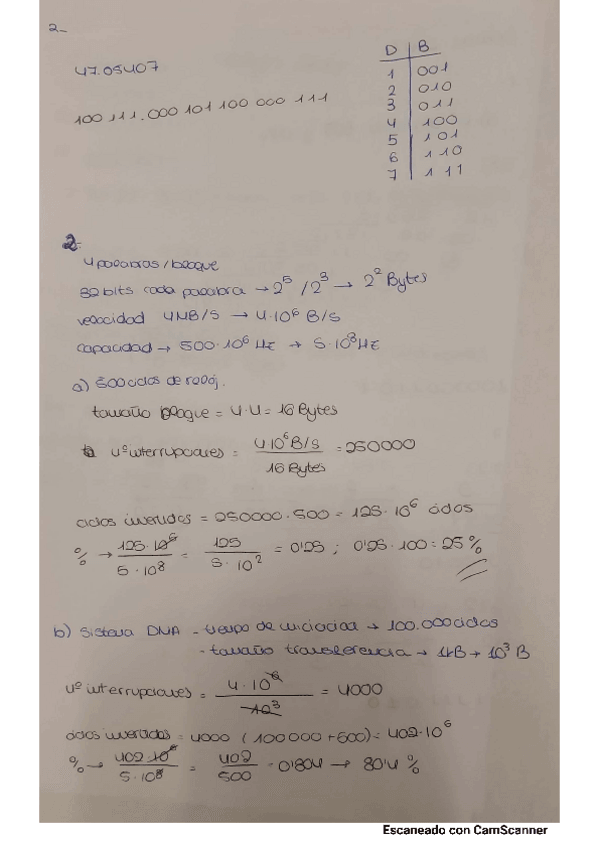 2-
47.05407
100 111.000 101 100 000 111
D | B
1 | 001
2 | 010
3 | 011
4 | 100
5 | 101
6 | 110
7 | 111
2-
4 palabras/bloque
32 bits cada palabra → 2^5 / 2^3 → 2^2 Bytes
velocidad 4MB/s → 4·10^6 B/s
capacidad → 500·10^6 Hz → 5·10^8 Hz
a) 500 ciclos de reloj.
tamaño bloque = 4·4 = 16 Bytes
nº interrupciones = 4·10^6 B/s / 16 Bytes = 250000
ciclos invertidos = 250000·500 = 125·10^6 ciclos
% → 125·10^6 / 5·10^8 = 125 / 5·10^2 = 0'25 ; 0'25·100 = 25%
b) Sistema DMA - tiempo de iniciar → 100.000 ciclos
- tamaño transferencia → 1kB → 10^3 B
nº interrupciones = 4·10^6 / 10^3 = 4000
ciclos invertidos = 4000 (100000+500) = 402·10^6
% → 402·10^6 / 5·10^8 = 402 / 500 = 0'804 → 80'4 %
Escaneado con CamScanner